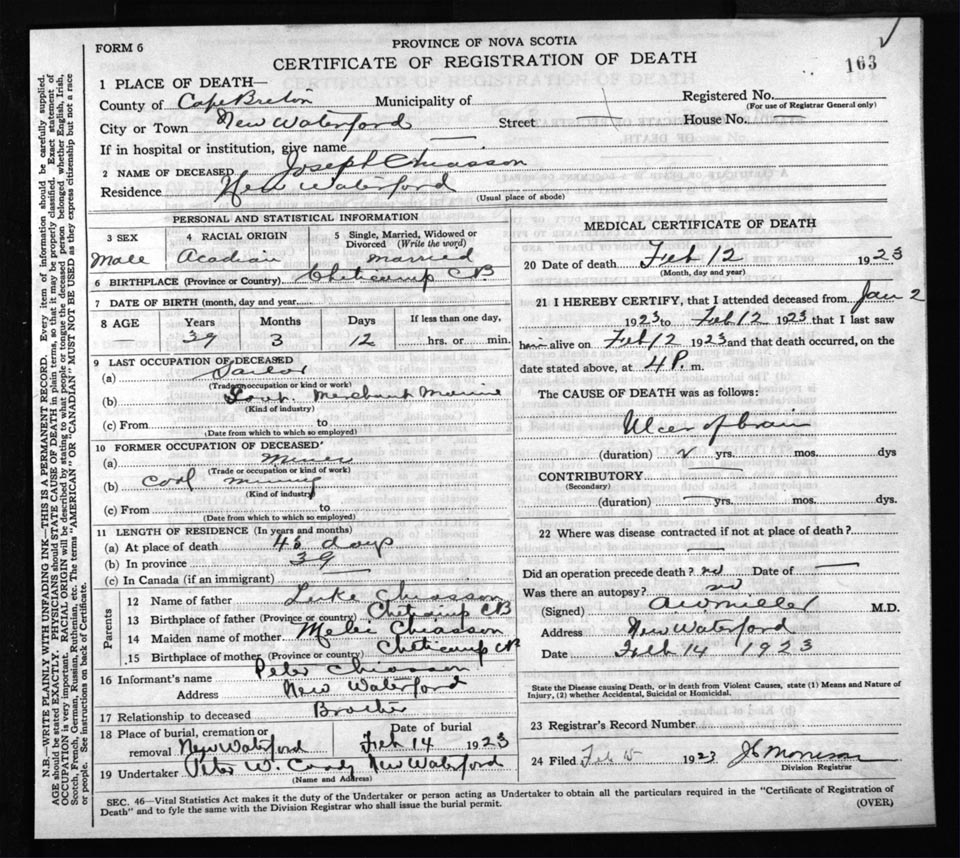 FORM 6
PROVINCE OF NOVA SCOTIA
CERTIFICATE OF REGISTRATION OF DEATH
163
1 PLACE OF DEATH—
County of Cape Breton Municipality of
Registered No.
(For use of Registrar General only)
City or Town New Waterford Street House No.
If in hospital or institution, give name
2 NAME OF DECEASED Joseph Chiasson
Residence New Waterford
(Usual place of abode)
PERSONAL AND STATISTICAL INFORMATION
3 SEX 4 RACIAL ORIGIN 5 Single, Married, Widowed or Divorced (Write the word)
Male Acadian married
6 BIRTHPLACE (Province or Country) Cheticamp CB
7 DATE OF BIRTH (month, day and year)
8 AGE Years Months Days If less than one day,
39 3 12 hrs. or min.
9 LAST OCCUPATION OF DECEASED
(a) Sailor
(Trade occupation or kind or work)
(b) Govt. Merchant Marine
(Kind of industry)
(c) From to
(Date from which to which so employed)
10 FORMER OCCUPATION OF DECEASED
(a) miner
(Trade or occupation or kind of work)
(b) Coal mining
(Kind of industry)
(c) From to
(Date from which to which so employed)
11 LENGTH OF RESIDENCE (In years and months)
(a) At place of death days
(b) In province 39
(c) In Canada (if an immigrant)
Parents
12 Name of father Luke Chiasson
13 Birthplace of father (Province or country) Cheticamp CB
14 Maiden name of mother Chiasson
15 Birthplace of mother (Province or country) Cheticamp CB
16 Informant's name Peter Chiasson
Address New Waterford
17 Relationship to deceased Brother
18 Place of burial, cremation or Date of burial
removal New Waterford Feb 14 1923
19 Undertaker Peter W. New Waterford
(Name and Address)
MEDICAL CERTIFICATE OF DEATH
20 Date of death Feb 12 1923
(Month, day and year)
21 I HEREBY CERTIFY, that I attended deceased from Jan 2
1923 to Feb 12 1923 that I last saw
him alive on Feb 12 1923 and that death occurred, on the
date stated above, at 4 P. m.
The CAUSE OF DEATH was as follows:
Ulcer of brain
(duration) yrs. mos. dys
CONTRIBUTORY
(Secondary)
(duration) yrs. mos. dys.
22 Where was disease contracted if not at place of death?
Did an operation precede death? no Date of
Was there an autopsy? no
(Signed) M.D.
Address New Waterford
Date Feb 14 1923
State the Disease causing Death, or in death from Violent Causes, state (1) Means and Nature of
Injury, (2) whether Accidental, Suicidal or Homicidal.
23 Registrar's Record Number
24 Filed Feb 15 1923
Division Registrar
SEC. 46—Vital Statistics Act makes it the duty of the Undertaker or person acting as Undertaker to obtain all the particulars required in the "Certificate of Registration of
Death" and to fyle the same with the Division Registrar who shall issue the burial permit.
(OVER)
N.B.—WRITE PLAINLY WITH UNFADING INK—THIS IS A PERMANENT RECORD. Every item of information should be carefully supplied.
AGE should be stated EXACTLY. PHYSICIANS should STATE CAUSE OF DEATH in plain terms, so that it may be properly classified. Exact statement of
OCCUPATION is very important. RACIAL ORIGIN will be described by stating to what people or tongue the deceased person belonged whether English, Irish,
Scotch, French, German, Russian, Ruthenian, etc. The terms "AMERICAN" OR "CANADIAN" MUST NOT BE USED as they express citizenship but not a race
or people. See instructions on back of Certificate.